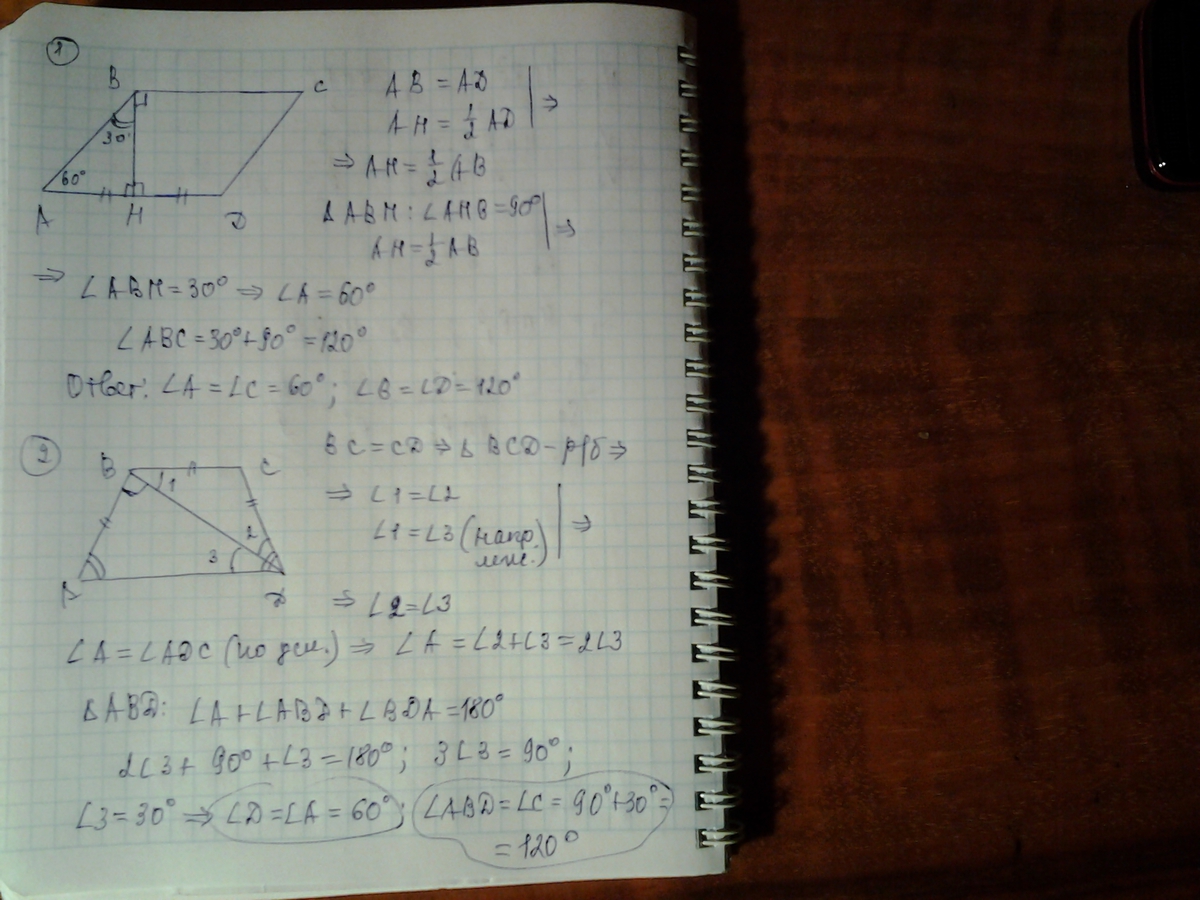 1
B C
30°
60°
A H D
AB = AD
AH = 1/2 AD | ⇒
⇒ AH = 1/2 AB
Δ ABH: ∠AHB = 90° | ⇒
AH = 1/2 AB
⇒ ∠ABH = 30° ⇒ ∠A = 60°
∠ABC = 30° + 90° = 120°
Ответ: ∠A = ∠C = 60°; ∠B = ∠D = 120°
2
B C
1
2
3
A D
BC = CD ⇒ Δ BCD - р/б ⇒
⇒ ∠1 = ∠2
∠1 = ∠3 (накр. леж.) | ⇒
⇒ ∠2 = ∠3
∠A = ∠ADC (по усл.) ⇒ ∠A = ∠2 + ∠3 = 2∠3
Δ ABD: ∠A + ∠ABD + ∠BDA = 180°
2∠3 + 90° + ∠3 = 180°; 3∠3 = 90°;
∠3 = 30° ⇒ ∠D = ∠A = 60°; ∠ABD = ∠C = 90° + 30° =
= 120°